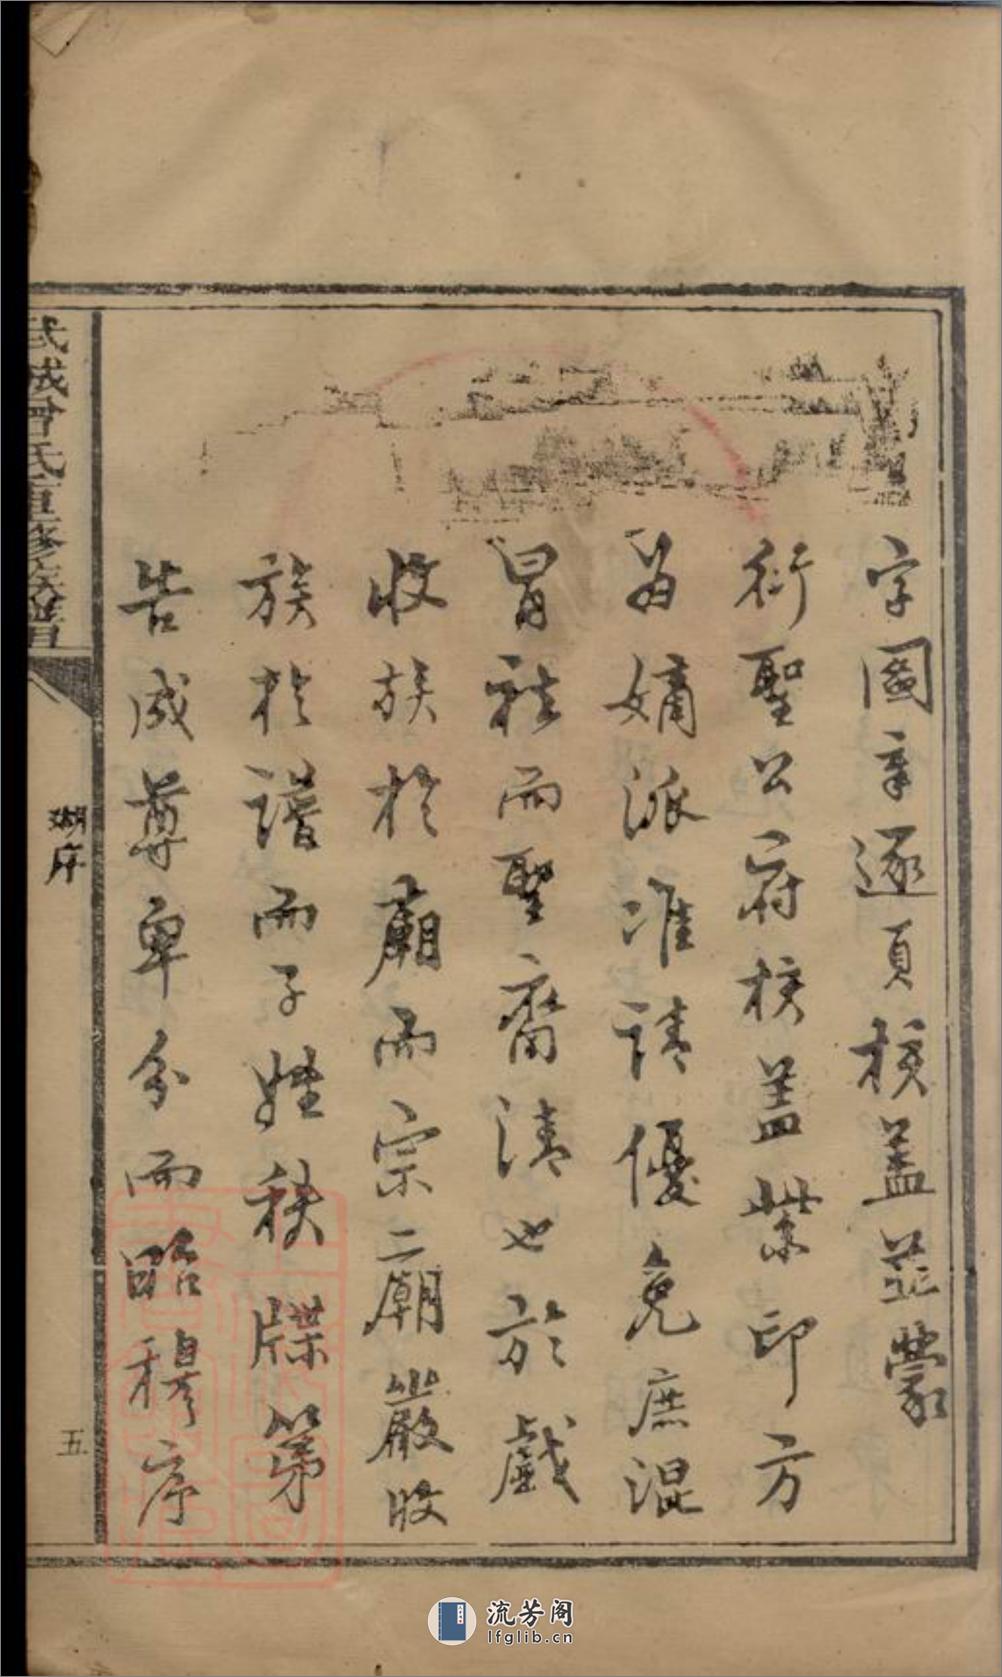 字圖章逐頁核蓋並蒙
衍聖公府核蓋紫印方
為嫡派准請優免庶混
冒祛而聖裔清也於戲
收族於廟而宗廟嚴收
族於譜而子姓秩牒第
告成尊卑分而昭穆序
武城曾氏重修族譜
序
五
流芳阁
lfglib.cn